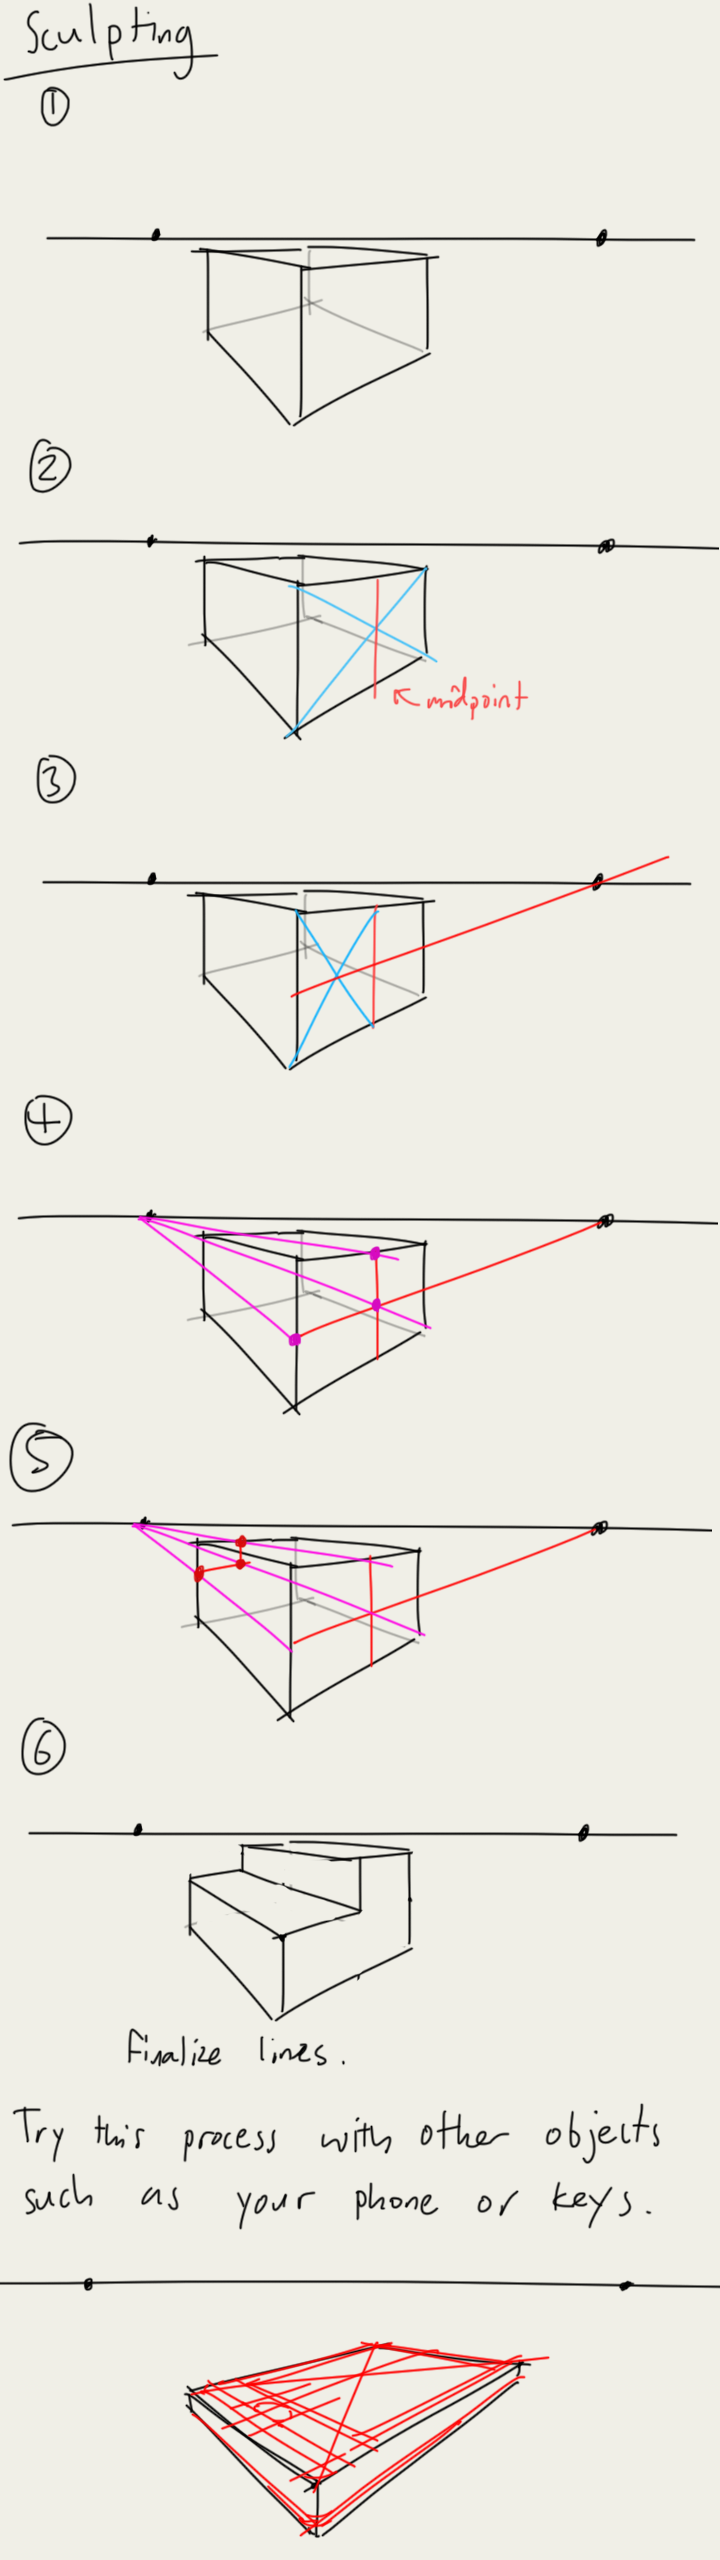 Sculpting
①
②
midpoint
③
④
⑤
⑥
Finalize lines.
Try this process with other objects
such as your phone or keys.